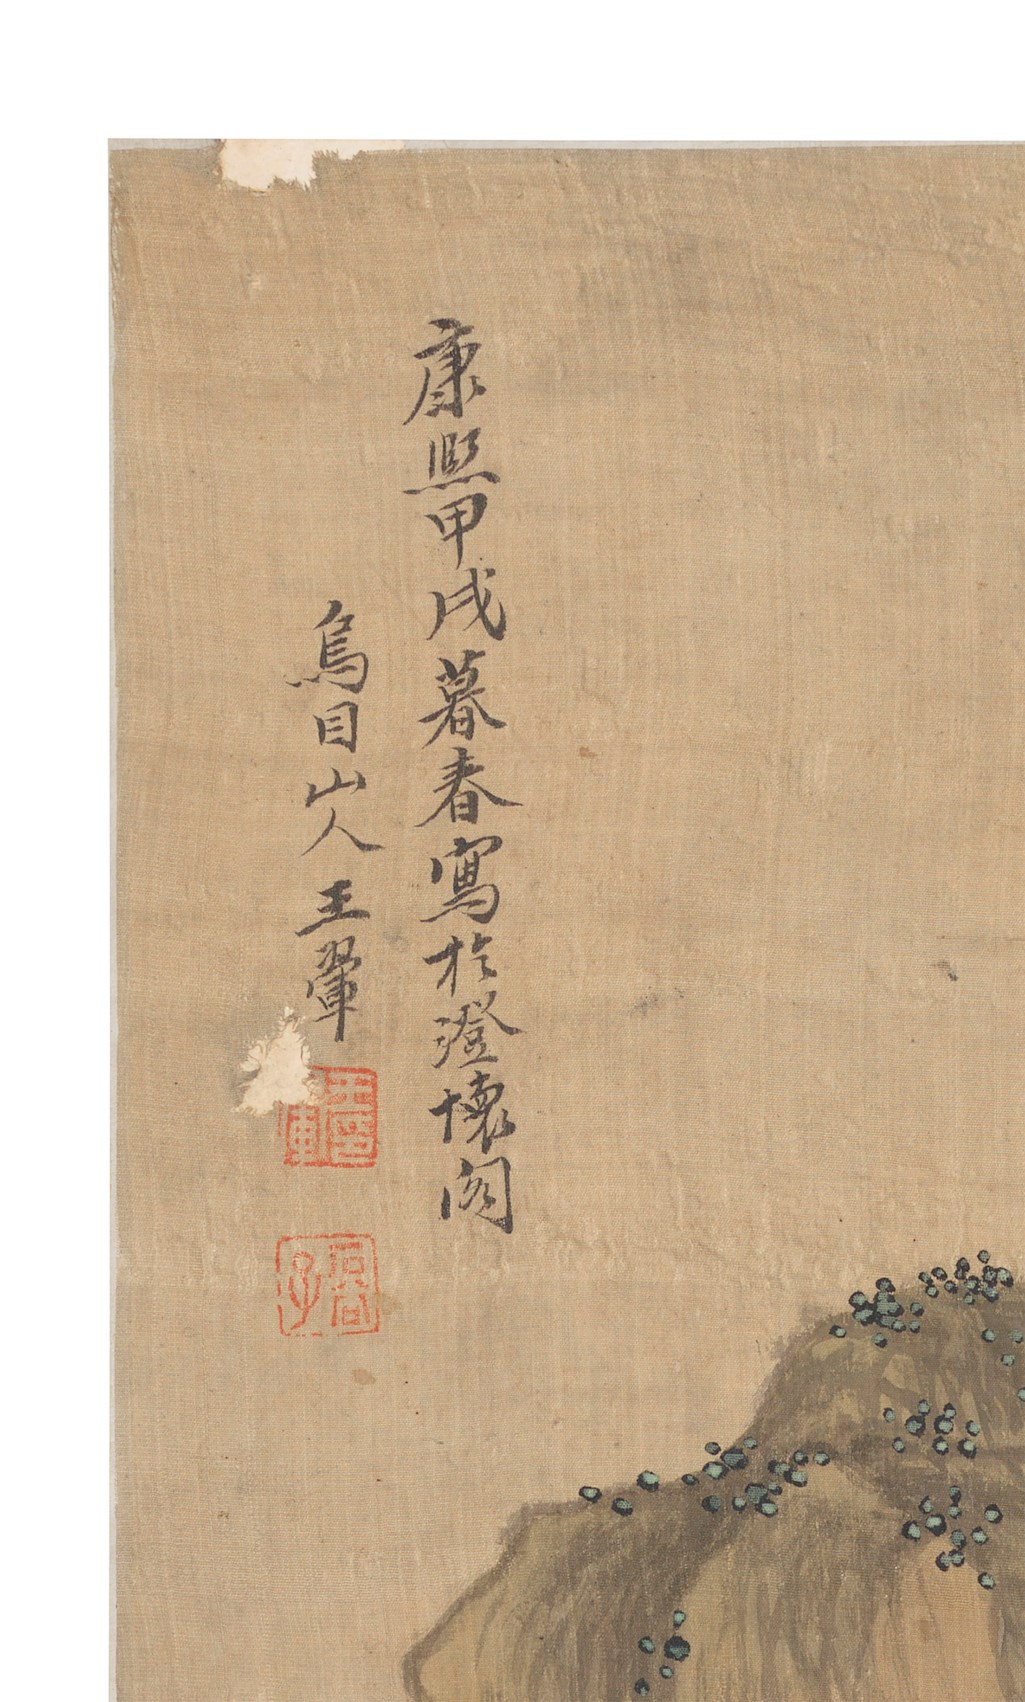 康熙甲戌暮春寫於澄懷閣
烏目山人王翬
王翬
石谷子